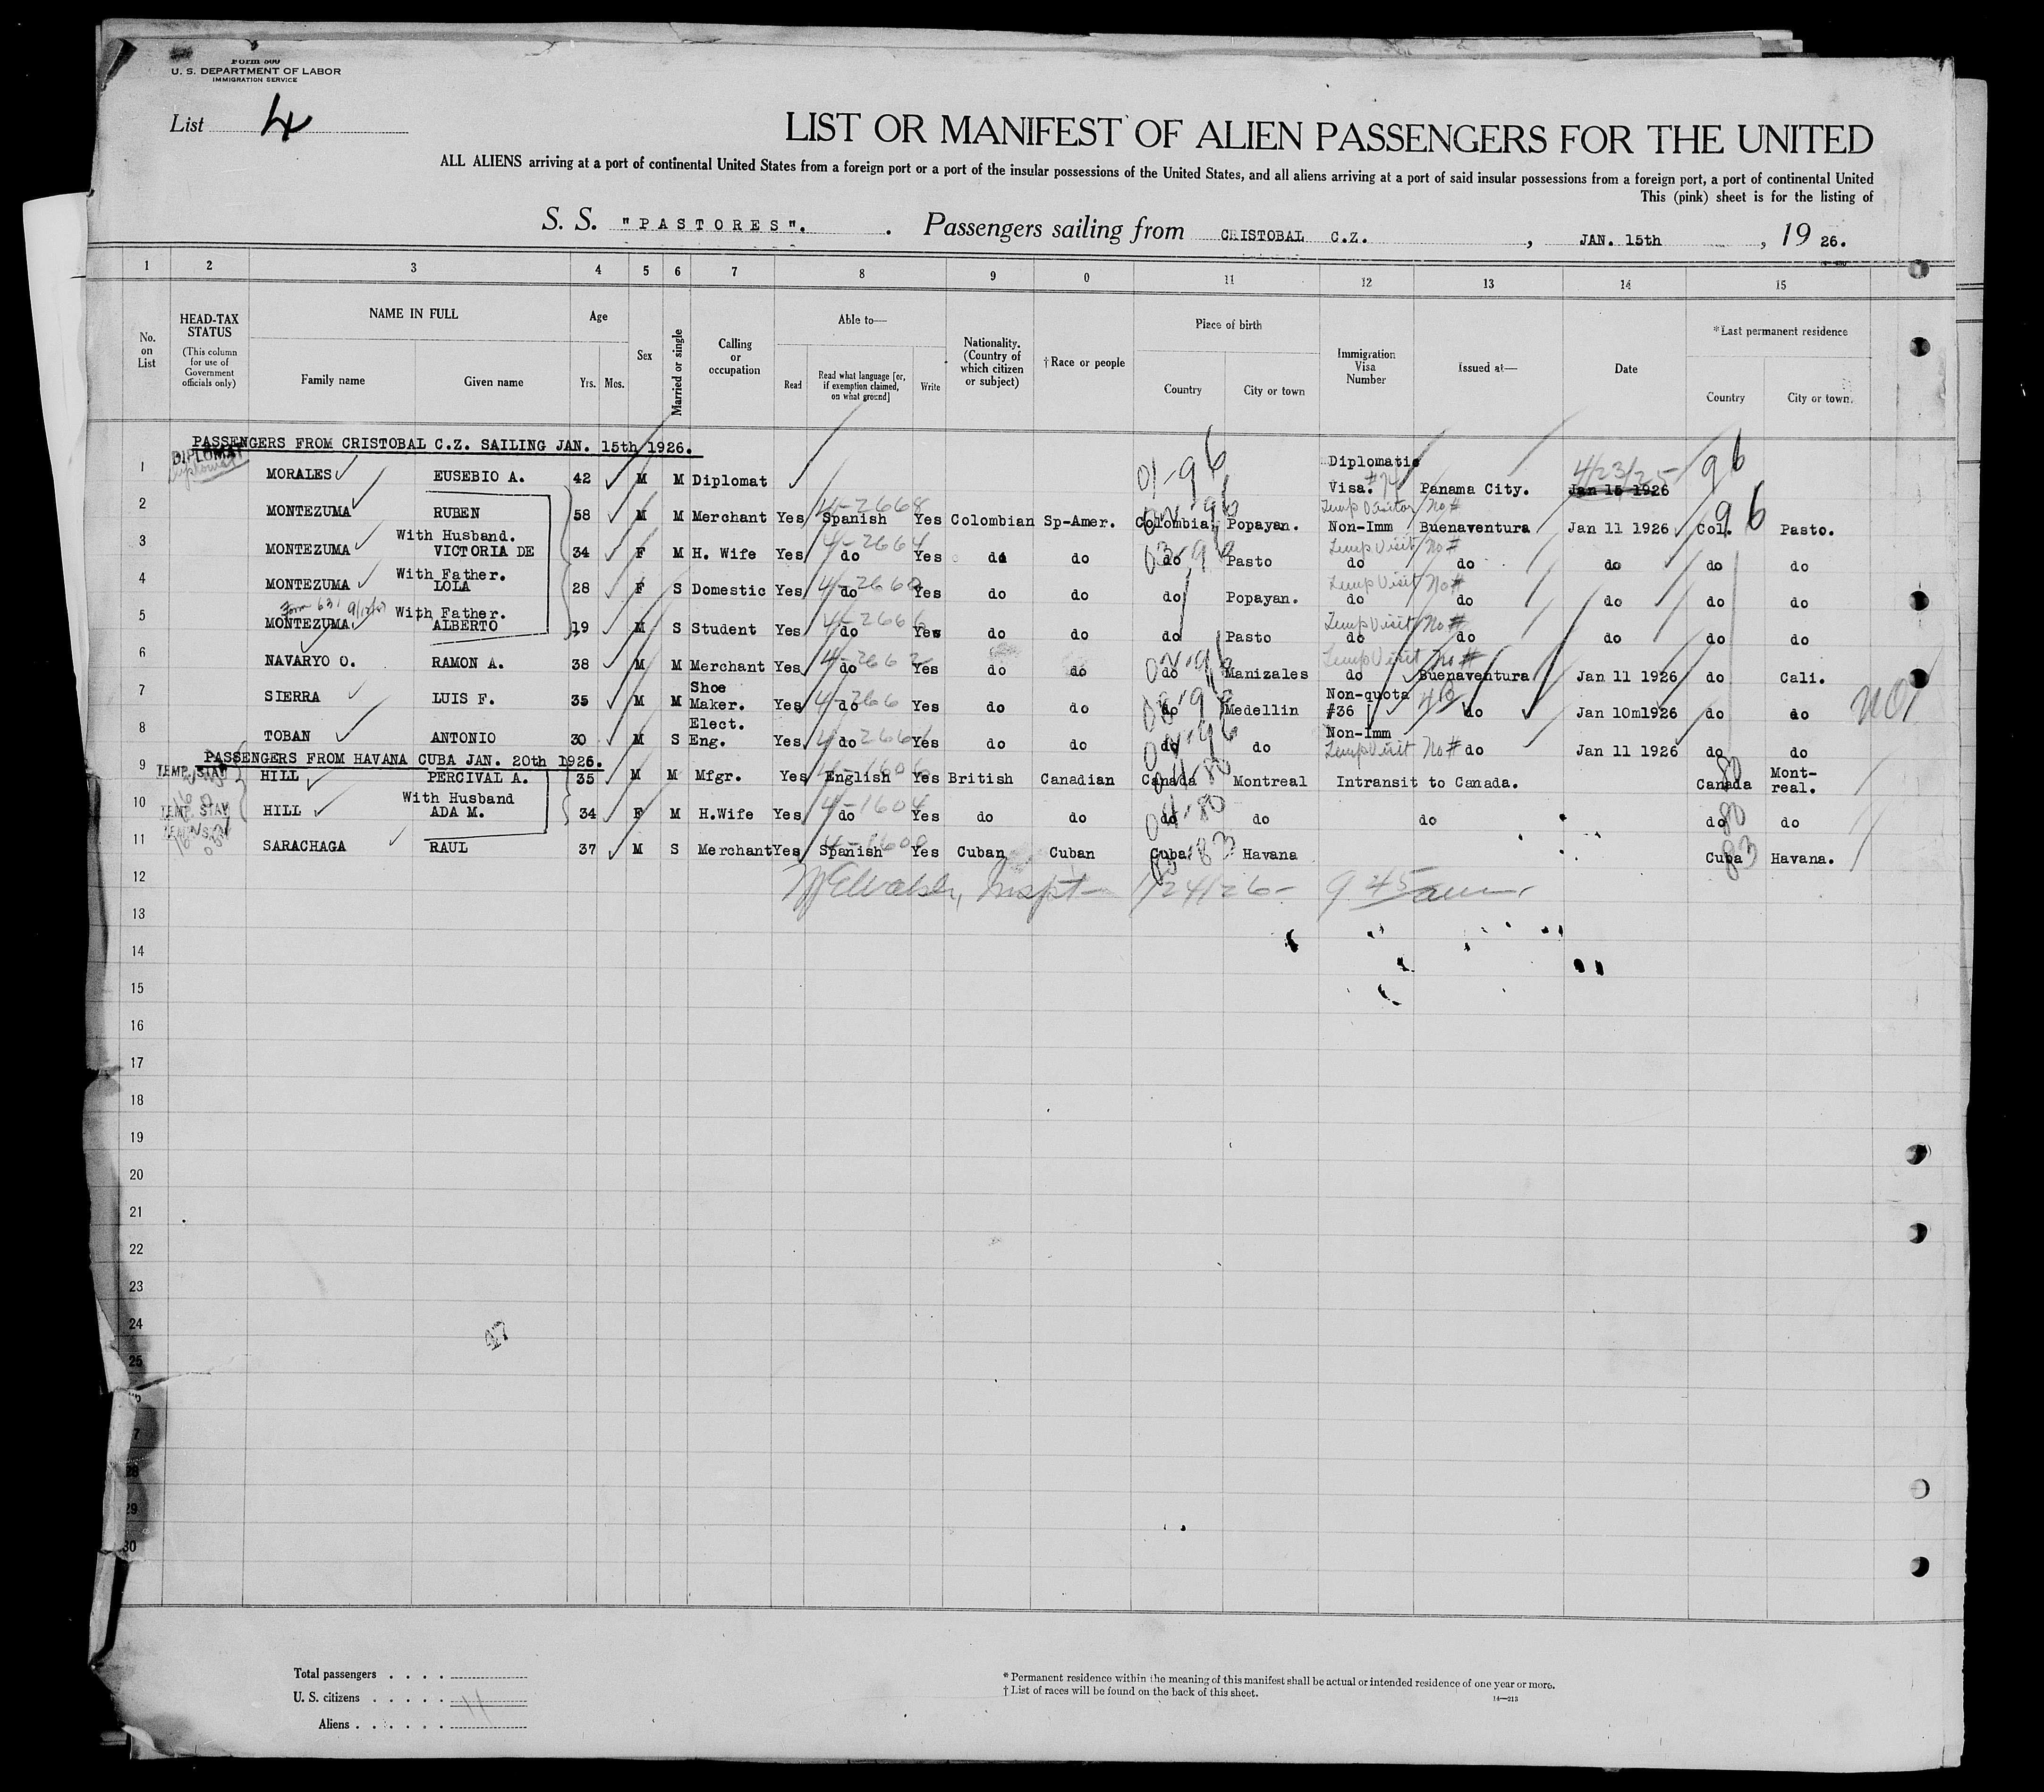 Form 500
U. S. DEPARTMENT OF LABOR
IMMIGRATION SERVICE
List 4
LIST OR MANIFEST OF ALIEN PASSENGERS FOR THE UNITED
ALL ALIENS arriving at a port of continental United States from a foreign port or a port of the insular possessions of the United States, and all aliens arriving at a port of said insular possessions from a foreign port, a port of continental United
This (pink) sheet is for the listing of
S. S. "PASTORES". Passengers sailing from CRISTOBAL C.Z., JAN. 15th, 19 26.
1 2 3 4 5 6 7 8 9 0 11 12 13 14 15
No. on List
HEAD-TAX STATUS (This column for use of Government officials only)
NAME IN FULL
Family name Given name
Age
Yrs. Mos.
Sex
Married or single
Calling or occupation
Able to—
Read Read what language [or, if exemption claimed, on what ground] Write
Nationality. (Country of which citizen or subject)
†Race or people
Place of birth
Country City or town
Immigration Visa Number
Issued at—
Date
*Last permanent residence
Country City or town.
PASSENGERS FROM CRISTOBAL C.Z. SAILING JAN. 15th 1926.
1 DIPLOMAT Diplomat MORALES EUSEBIO A. 42 M M Diplomat 01-96 Diplomatic Visa. #74 Panama City. 4/23/25 Jan 15 1926 96
2 MONTEZUMA RUBEN 58 M M Merchant Yes 4-2668 Spanish Yes Colombian Sp-Amer. Colombia Popayan. Temp Visitor No # Non-Imm Buenaventura Jan 11 1926 Col. 96 Pasto.
3 MONTEZUMA With Husband. VICTORIA DE 34 F M H. Wife Yes 4-2664 do Yes do do do 03-96 Pasto Temp Visit No # do do do do do
4 MONTEZUMA With Father. LOLA 28 F S Domestic Yes do Yes do do do Popayan. Temp Visit No # do do do do do
5 MONTEZUMA With Father. ALBERTO 19 M S Student Yes 4-2666 do Yes do do do Pasto Temp Visit No # do do do do do
6 NAVARYO O. RAMON A. 38 M M Merchant Yes 4-2662 do Yes do do do Manizales Temp Visit No # do Buenaventura Jan 11 1926 do Cali.
7 SIERRA LUIS F. 35 M M Shoe Maker. Yes do Yes do do do Medellin Non-quota #36 do Jan 10m1926 do do
8 TOBAN ANTONIO 30 M S Elect. Eng. Yes do Yes do do do do Non-Imm Temp Visit No # do Jan 11 1926 do do
PASSENGERS FROM HAVANA CUBA JAN. 20th 1926.
9 TEMP. STAY HILL PERCIVAL A. 35 M M Mfgr. Yes English Yes British Canadian Canada Montreal Intransit to Canada. Canada 80 Mont-real.
10 TEMP. STAY HILL With Husband ADA M. 34 F M H.Wife Yes 4-1604 do Yes do do do do do do 80 do
11 TEMP. STAY SARACHAGA RAUL 37 M S Merchant Yes 4-1600 Spanish Yes Cuban Cuban Cuba 83 Havana Cuba 83 Havana.
12 Inspt- 1/24/26- 9 45 am
13
14
15
16
17
18
19
20
21
22
23
24
25
28
29
30
Total passengers . . . .
U. S. citizens . . . . . 11
Aliens . . . . . .
* Permanent residence within the meaning of this manifest shall be actual or intended residence of one year or more.
† List of races will be found on the back of this sheet.
14—213